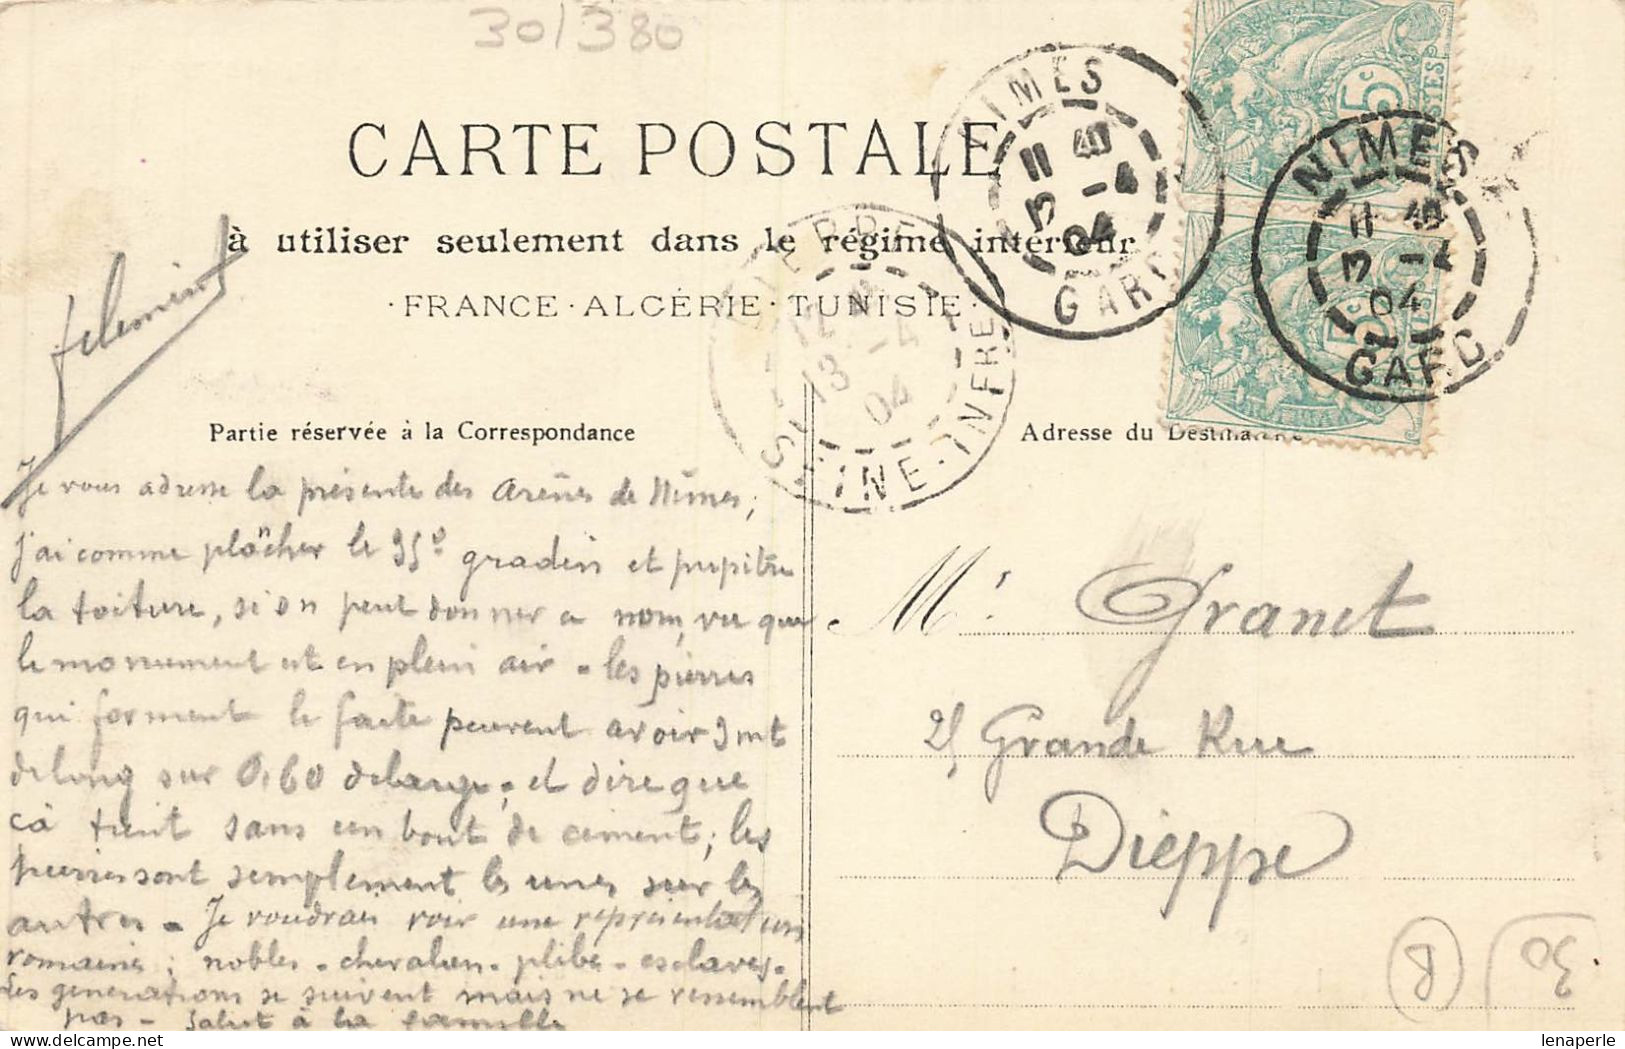 30/380
CARTE POSTALE
à utiliser seulement dans le régime intérieur
·FRANCE·ALGÉRIE·TUNISIE·
NIMES
GARD
5c
POSTES
NIMES
GARD
DIEPPE
SEINE-INFRE
Partie réservée à la Correspondance
Je vous adresse la présente des Arènes de Nîmes,
j'ai comme plâncher le 35e gradin et pupitre
la toiture, si on peut donner ce nom, vu que
le monument est en plein air - les pierres
qui forment le faite peuvent avoir 3 mt
de long sur 0.60 de large, et dire que
çà tient sans un bout de ciment; les
pierres sont semplement les unes sur les
autres - Je voudrais voir une représentation
romaine; nobles - chevaliers - plèbe - esclaves -
Les générations se suivent mais ne se ressemblent
pas - Salut à la famille
Adresse du Destinataire
Mr Granet
25 Grande Rue
Dieppe
8
30
lenaperle